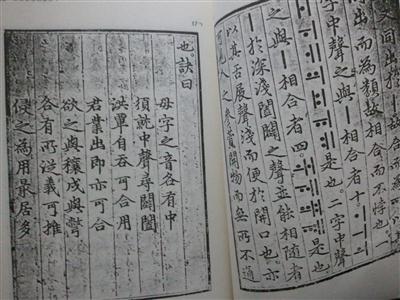 又同出於ㅣ
出而為類。故相合而不悖也。一
字中聲之與ㅣ相合者十。ㆎㅢㅚ
ㅐㅟㅔㆉㅒㆌㅖ是也。二字中聲
之與ㅣ相合者四。ㅙㅞㆈㆋ是也
ㅣ於深淺闔闢之聲。並能相隨者
以其舌展聲淺而便於開口也。亦
可見人之參贊開物而無所不通
也。訣曰
母字之音各有中
須就中聲尋闢闔
洪覃自吞可合用
君業出即亦可合
欲之與穰戌與彆
各有所從義可推
侵之為用最居多